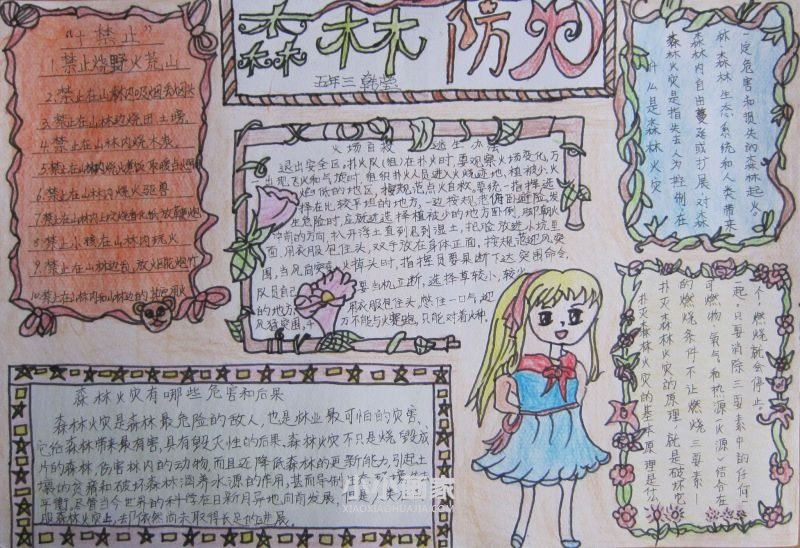 森林防火
五年三
"十禁止"
1.禁止烧野火荒山
2.禁止在山林内吸烟丢烟头
3.禁止在山林边烧田土埂
4.禁止在山林内烧木炭
5.禁止在山林内烧火煮饭取暖
6.禁止在山林内烧火驱兽
7.禁止在山林内上坟烧香火纸放鞭炮
8.禁止小孩在山林内玩火
9.禁止在山林边
10.禁止在山林内和山林边的其它用火
火场自救 逃生办法
退出安全区。扑火队(组)在扑火时,要观察火场变化,万
一出现飞火和气旋时,组织扑火人员进入火烧迹地、植被少、火
焰低的地区。按规范点火自救。要统一指挥,选
择在比较平坦的地方,一边按规范俯卧避险。发
生危险时,应就近选择植被少的地方卧倒,脚朝火
冲来的方向,扒开浮土直到见到湿土,把脸放进小坑里
面,用衣服包住头,双手放在身体正面。按规范迎风突
围,当风向突变,火掉头时,指挥员要果断下达突围命令,
队员自己要当机立断,选择草较小、较少
的地方,用衣服包住头,憋住一口气,迎
风猛突围,千万不能与火赛跑,只能对着火冲。
什么是森林火灾
森林火灾是指失去人为控制,在
森林内自由蔓延或扩展,对森
林、森林生态系统和人类带来
一定危害和损失的森林起火。
扑灭森林火灾的基本原理是什
扑灭森林火灾的原理,就是破坏它
的燃烧条件,不让燃烧三要素—
可燃物、氧气和热源(火源)结合在一
起,只要消除三要素中的任何一
个,燃烧就会停止。
森林火灾有哪些危害和后果
森林火灾是森林最危险的敌人,也是林业最可怕的灾害,
它给森林带来最有害,具有毁灭性的后果,森林火灾不只是烧毁成
片的森林,伤害林内的动物,而且还降低森林的更新能力,引起土
壤的贫瘠和破坏森林涵养水源的作用,甚而导致
平衡,尽管当今世界的科学在日新月异地向前发展,但是,人类
服森林火灾上,却依然尚未取得长足的进展。
XIAOXIAOHUAJIA.COM